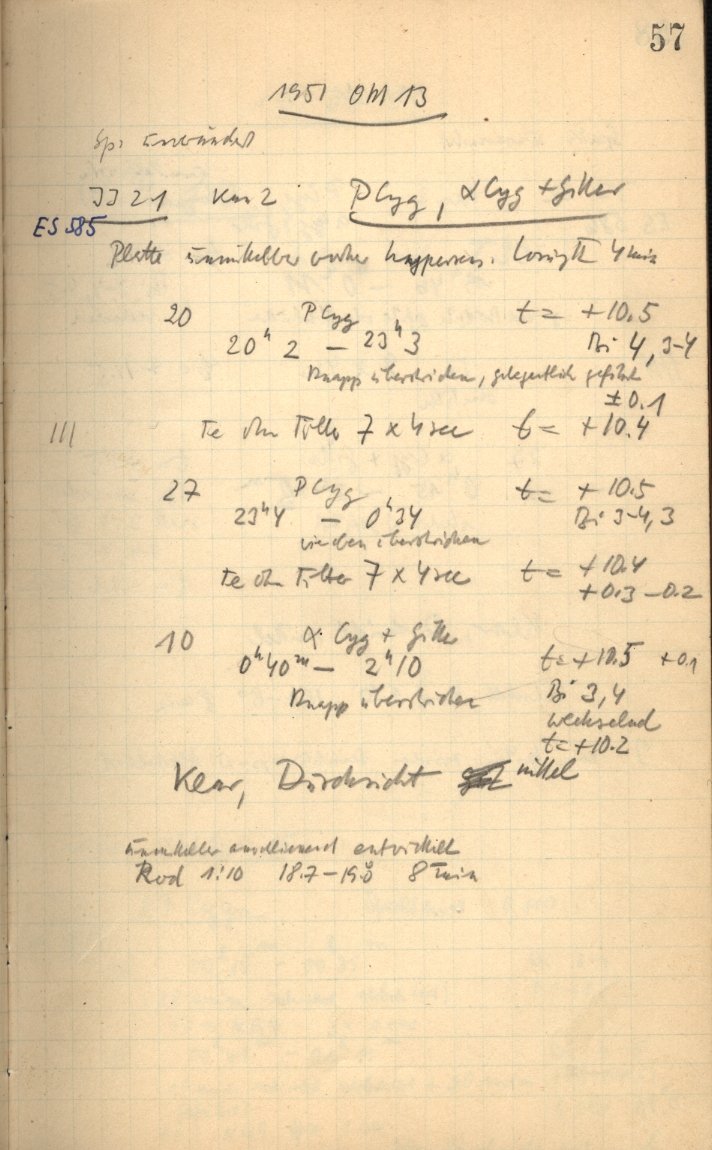 57
1951 Okt 13
Sp: unverändert
JJ 21 Kam 2 P Cyg, α Cyg + Gitter
ES 585
Platte unmittelbar vorher 4 min
20 P Cyg t = +10.5
20ʰ 2 — 23ʰ 3 Bi 4, 3-4
Knapp überstrichen, gelegentlich geführt
± 0.1
III Te ohne Filter 7 x 4 sec t = +10.4
27 P Cyg t = +10.5
23ʰ4 — 0ʰ34 Bi 3-4, 3
wie oben überstrichen
Te ohne Filter 7 x 4 sec t = +10.4
+0.3 –0.2
10 α Cyg + Gitter
0ʰ40ᵐ — 2ʰ10 t = +10.5 +0.1
Knapp überstrichen Bi 3, 4
wechselnd
t = +10.2
Klar, Durchsicht mittel
unmittelbar anschliessend entwickelt
Rod 1:10 18.7 – 19.0 8 min